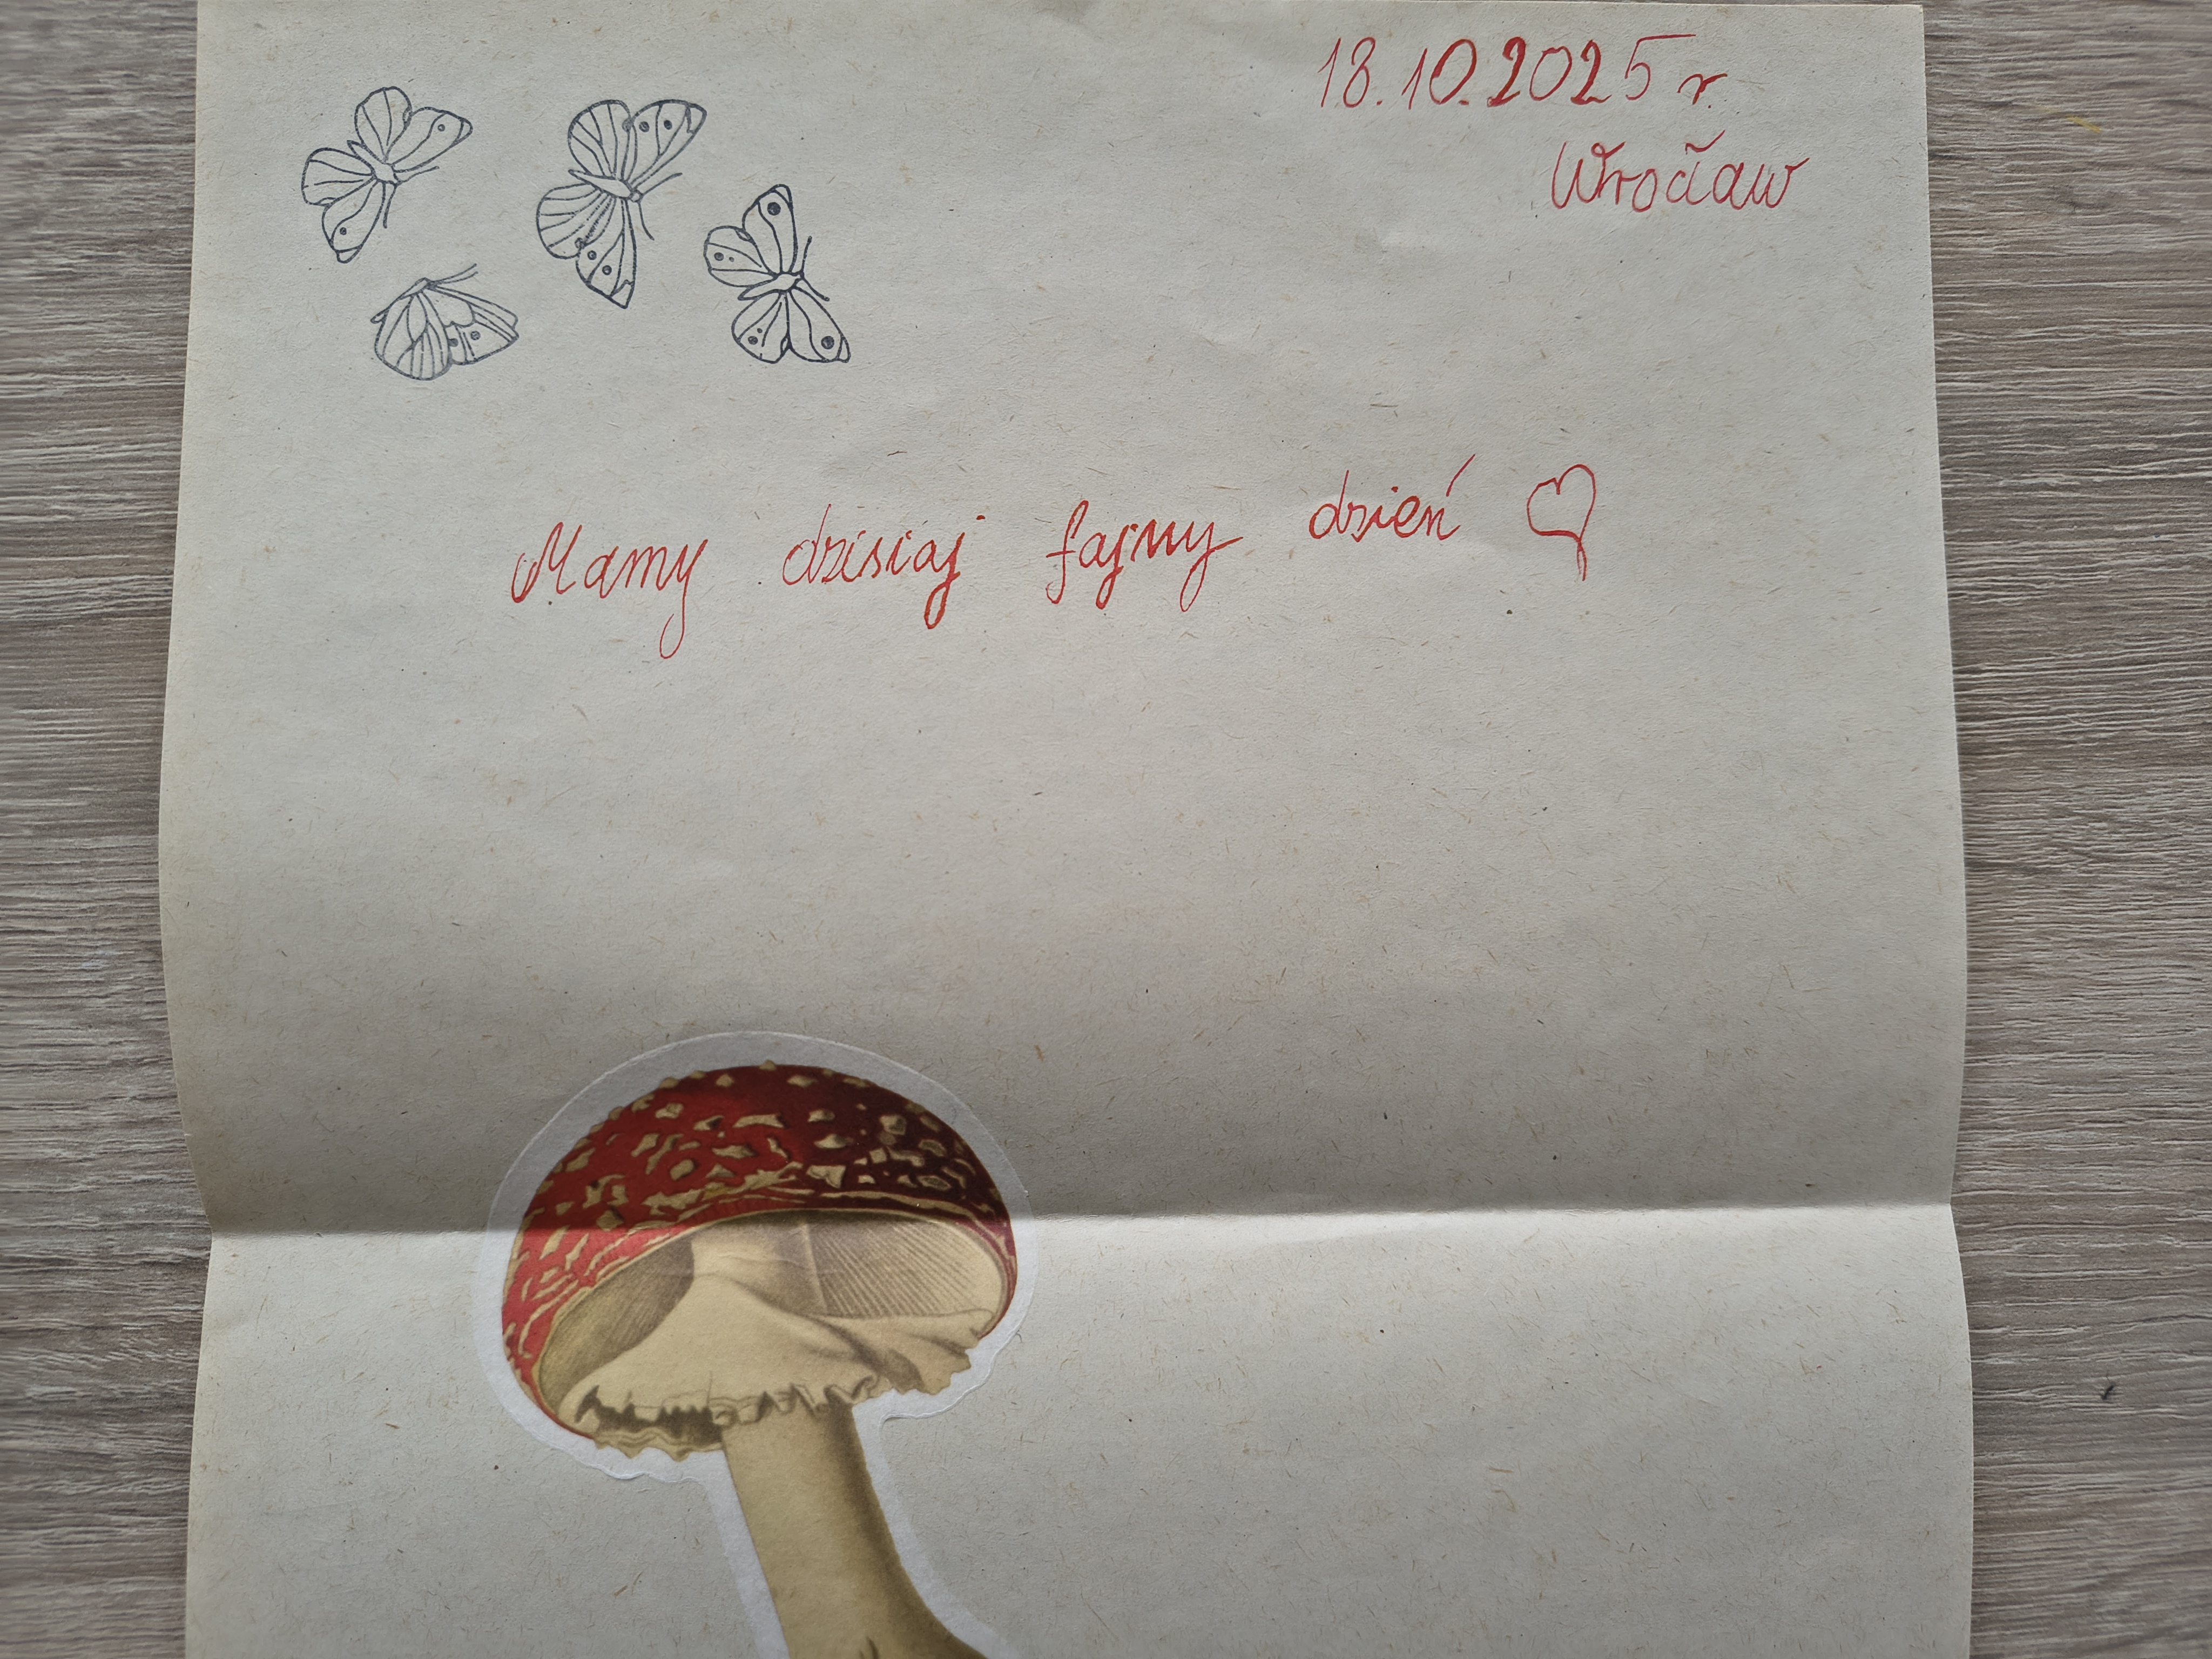 18.10.2025 r.
Wrocław
Mamy dzisiaj fajny dzień ♡